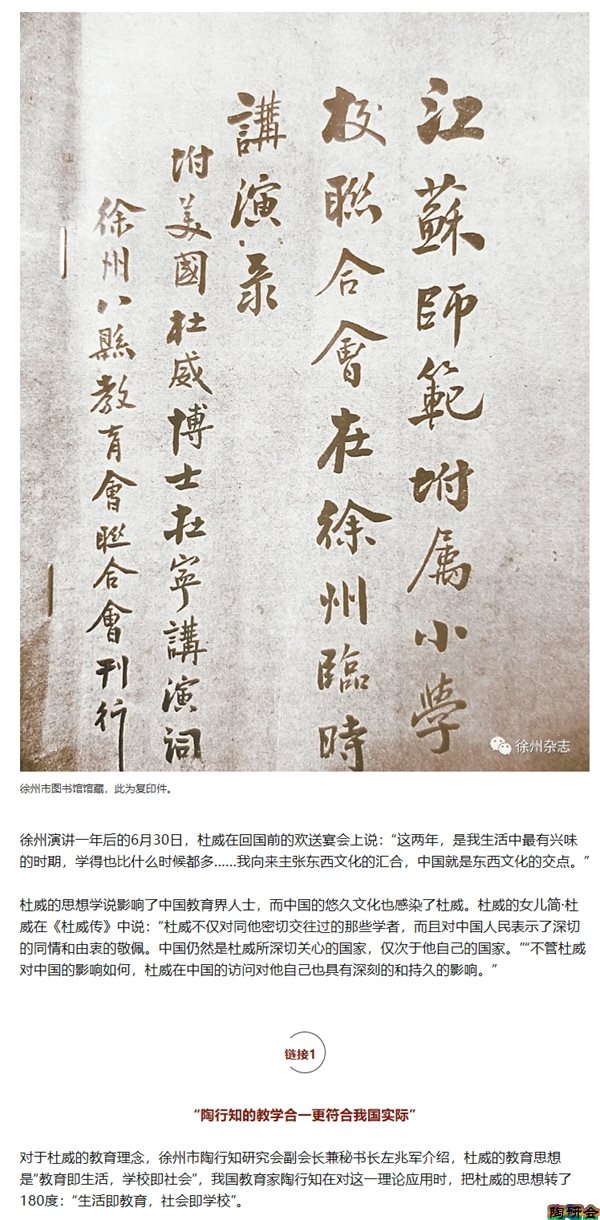 江蘇師範附属小学
校聯合會在徐州臨時
講演录
附美國杜威博士在寧講演词
徐州八縣教育會聯合會刊行
徐州杂志
徐州市图书馆馆藏，此为复印件。
徐州演讲一年后的6月30日，杜威在回国前的欢送宴会上说：“这两年，是我生活中最有兴味
的时期，学得也比什么时候都多……我向来主张东西文化的汇合，中国就是东西文化的交点。”
杜威的思想学说影响了中国教育界人士，而中国的悠久文化也感染了杜威。杜威的女儿简·杜
威在《杜威传》中说：“杜威不仅对同他密切交往过的那些学者，而且对中国人民表示了深切
的同情和由衷的敬佩。中国仍然是杜威所深切关心的国家，仅次于他自己的国家。”“不管杜威
对中国的影响如何，杜威在中国的访问对他自己也具有深刻的和持久的影响。”
链接1
“陶行知的教学合一更符合我国实际”
对于杜威的教育理念，徐州市陶行知研究会副会长兼秘书长左兆军介绍，杜威的教育思想
是“教育即生活，学校即社会”，我国教育家陶行知在对这一理论应用时，把杜威的思想转了
180度：“生活即教育，社会即学校”。
陶研会